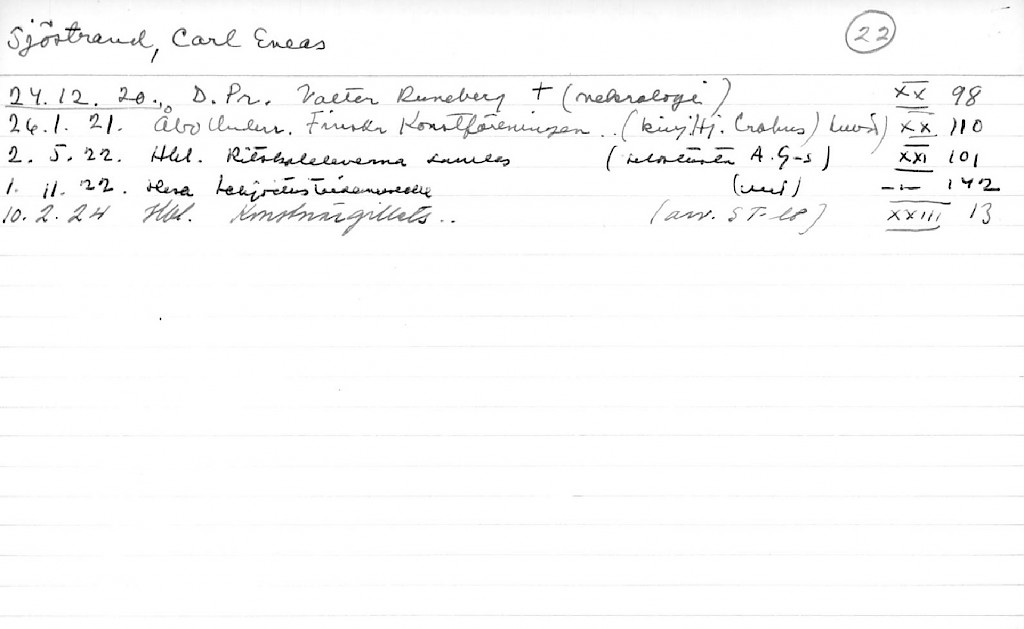 Sjöstrand, Carl Eneas 22
24.12.20., D. Pr. Valter Runeberg + (nekrologi) XX 98
26.1.21. Åbo Underr. Finska Konstföreningen .. (kirj. Hj. Crohns) XX 110
2.5.22. Hbl. Ritskoleleverna samlas ( A. G-s) XXI 101
1.11.22. (uusi) -"- 142
10.2.24 Hbl. Konstnärsgillets .. (arv. S T-lö) XXIII 13